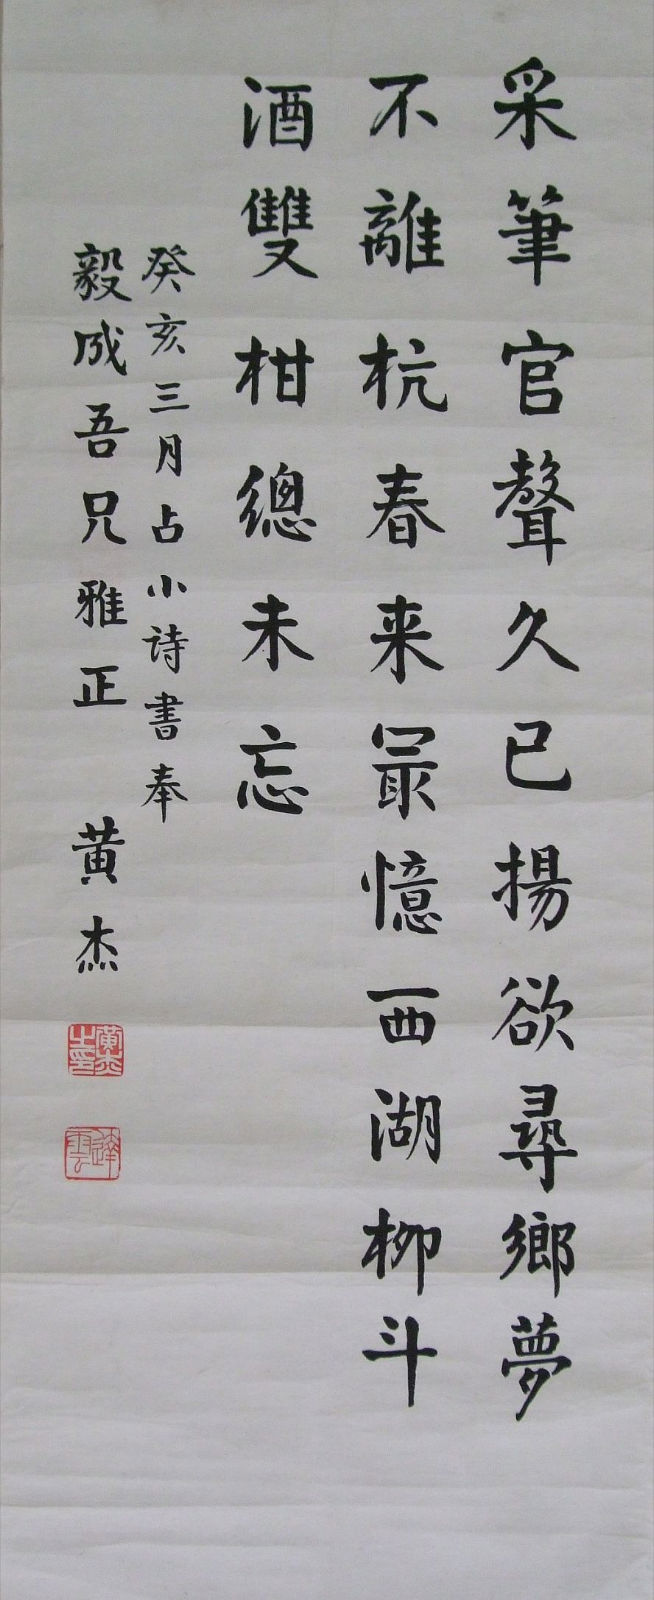 采筆官聲久已揚欲尋鄉夢
不離杭春来最憶西湖柳斗
酒雙柑總未忘
癸亥三月占小詩書奉
毅成吾兄雅正 黄杰
黃杰之印
達雲